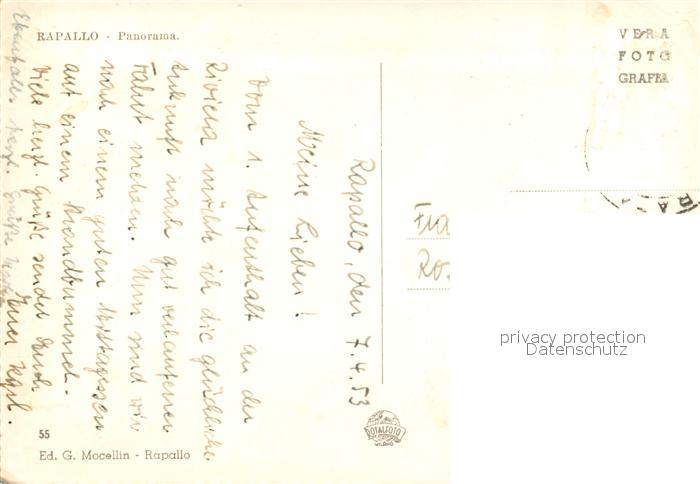 RAPALLO - Panorama.
VERA
FOTO
GRAFIA
Rapallo, den 7.4.53
Meine Lieben!
Vom 1. Aufenthalt an der
Riviera möchte ich die glückliche
Ankunft nach gut verlaufener
Fahrt melden. Nun sind wir
nach einem guten Mittagessen
auf einem Strandbummel.
Viele herzl. Grüße sendet Euch
Euer
Ebenfalls herzl. Grüße
Fra
Ro
privacy protection
Datenschutz
TOTALFOTO
MILANO
55
Ed. G. Mocellin - Rapallo